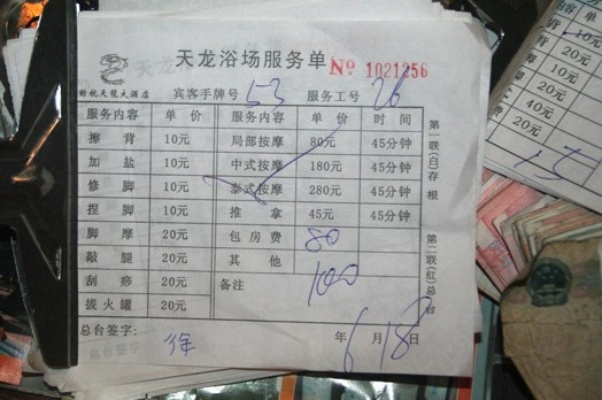 天龙浴场服务单 No 1021256
余杭天龙大酒店 宾客手牌号 53 服务工号 26
服务内容 单价 服务内容 单价 时间
擦背 10元 局部按摩 80元 45分钟
加盐 10元 中式按摩 180元 45分钟
修脚 10元 泰式按摩 280元 45分钟
捏脚 10元 推拿 45元 45分钟
脚摩 20元 包房费 80
敲腿 20元 其他
刮痧 20元 备注 100
拔火罐 20元
总台签字: 徐 年 6月18日
第一联(白)存根 第二联(红)总台
背 10元
20元
10元
20元
40元
20元
15